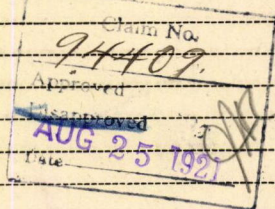 Claim No.
94409.
Approved
Disapproved
AUG 25 1921
Date